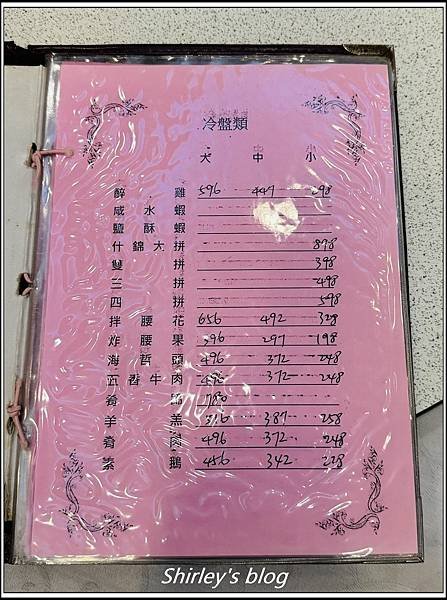 冷盤類
大 中 小
醉雞 596 447 298
咸水蝦
鹽酥蝦
什錦大拼 898
雙拼 398
三拼 498
四拼 598
拌腰花 656 492 328
炸腰果 396 297 198
海哲頭 496 372 248
五香牛肉 496 372 248
肴蹄 780
羊羔 516 387 258
肴肉 496 372 248
素鵝 456 342 228
Shirley's blog